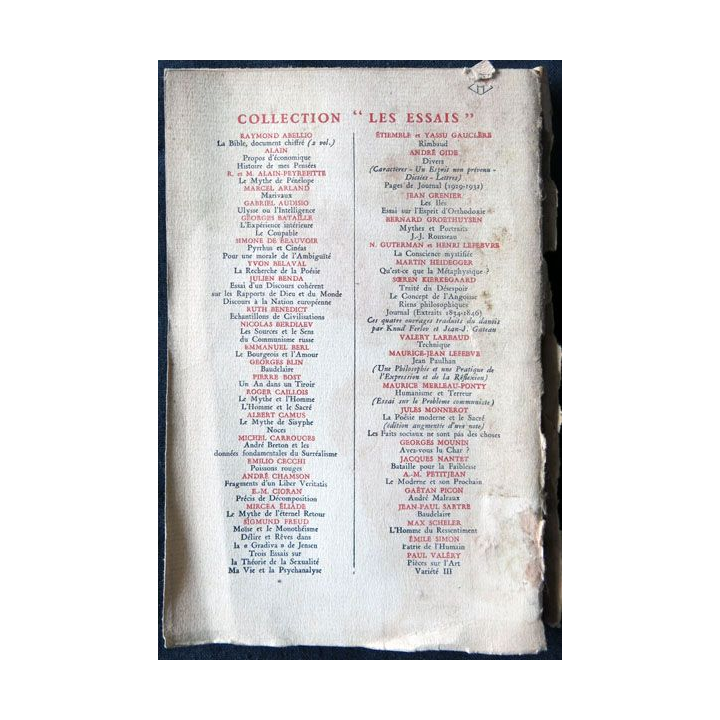 COLLECTION "LES ESSAIS"
RAYMOND ABELLIO
La Bible, document chiffré (2 vol.)
ALAIN
Propos d'économique
Histoire de mes Pensées
R. et M. ALAIN-PEYREFITTE
Le Mythe de Pénélope
MARCEL ARLAND
Marivaux
GABRIEL AUDISIO
Ulysse ou l'Intelligence
GEORGES BATAILLE
L'Expérience intérieure
Le Coupable
SIMONE DE BEAUVOIR
Pyrrhus et Cinéas
Pour une morale de l'Ambiguïté
YVON BELAVAL
La Recherche de la Poésie
JULIEN BENDA
Essai d'un Discours cohérent
sur les Rapports de Dieu et du Monde
Discours à la Nation européenne
RUTH BENEDICT
Echantillons de Civilisations
NICOLAS BERDIAEV
Les Sources et le Sens
du Communisme russe
EMMANUEL BERL
Le Bourgeois et l'Amour
GEORGES BLIN
Baudelaire
PIERRE BOST
Un An dans un Tiroir
ROGER CAILLOIS
Le Mythe et l'Homme
L'Homme et le Sacré
ALBERT CAMUS
Le Mythe de Sisyphe
Noces
MICHEL CARROUGES
André Breton et les
données fondamentales du Surréalisme
EMILIO CECCHI
Poissons rouges
ANDRÉ CHAMSON
Fragments d'un Liber Veritatis
E.-M. CIORAN
Précis de Décomposition
MIRCEA ÉLIADE
Le Mythe de l'éternel Retour
SIGMUND FREUD
Moïse et le Monothéisme
Délire et Rêves dans
la « Gradiva » de Jensen
Trois Essais sur
la Théorie de la Sexualité
Ma Vie et la Psychanalyse
ÉTIEMBLE et YASSU GAUCLÈRE
Rimbaud
ANDRÉ GIDE
Divers
(Caractères - Un Esprit non prévenu -
Dictées - Lettres)
Pages de Journal (1929-1932)
JEAN GRENIER
Les Iles
Essai sur l'Esprit d'Orthodoxie
BERNARD GROETHUYSEN
Mythes et Portraits
J.-J. Rousseau
N. GUTERMAN et HENRI LEFEBVRE
La Conscience mystifiée
MARTIN HEIDEGGER
Qu'est-ce que la Métaphysique ?
SŒREN KIERKEGAARD
Traité du Désespoir
Le Concept de l'Angoisse
Riens philosophiques
Journal (Extraits 1834-1846)
Ces quatre ouvrages traduits du danois
par Knud Ferlov et Jean-J. Gateau
VALERY LARBAUD
Technique
MAURICE-JEAN LEFEBVE
Jean Paulhan
(Une Philosophie et une Pratique de
l'Expression et de la Réflexion)
MAURICE MERLEAU-PONTY
Humanisme et Terreur
(Essai sur le Problème communiste)
JULES MONNEROT
La Poésie moderne et le Sacré
(édition augmentée d'une note)
Les Faits sociaux ne sont pas des choses
GEORGES MOUNIN
Avez-vous lu Char ?
JACQUES NANTET
Bataille pour la Faiblesse
A.-M. PETITJEAN
Le Moderne et son Prochain
GAËTAN PICON
André Malraux
JEAN-PAUL SARTRE
Baudelaire
MAX SCHELER
L'Homme du Ressentiment
ÉMILE SIMON
Patrie de l'Humain
PAUL VALÉRY
Pièces sur l'Art
Variété III